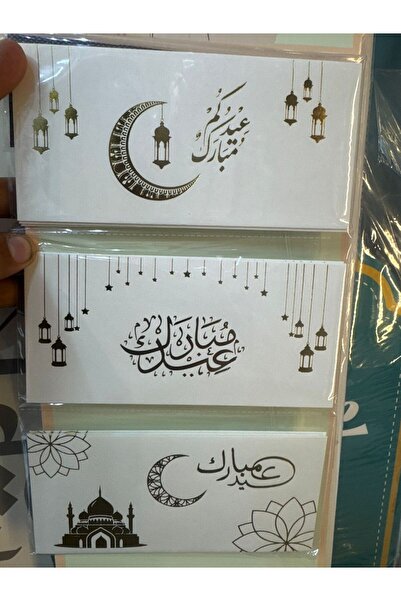 عيدكم مبارك
عيد مبارك
عيد مبارك